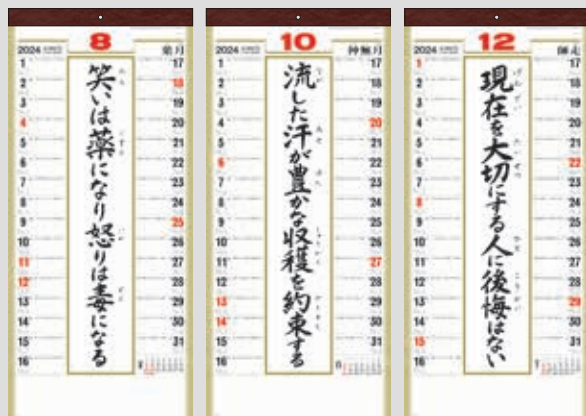 8
2024
葉月
1
2
3
4
5
6
7
8
9
10
11
12
13
14
15
16
笑いは薬になり怒りは毒になる
17
18
19
20
21
22
23
24
25
26
27
28
29
30
31
10
2024
神無月
1
2
3
4
5
6
7
8
9
10
11
12
13
14
15
16
流した汗が豊かな収穫を約束する
17
18
19
20
21
22
23
24
25
26
27
28
29
30
31
12
2024
師走
1
2
3
4
5
6
7
8
9
10
11
12
13
14
15
16
現在を大切にする人に後悔はない
17
18
19
20
21
22
23
24
25
26
27
28
29
30
31